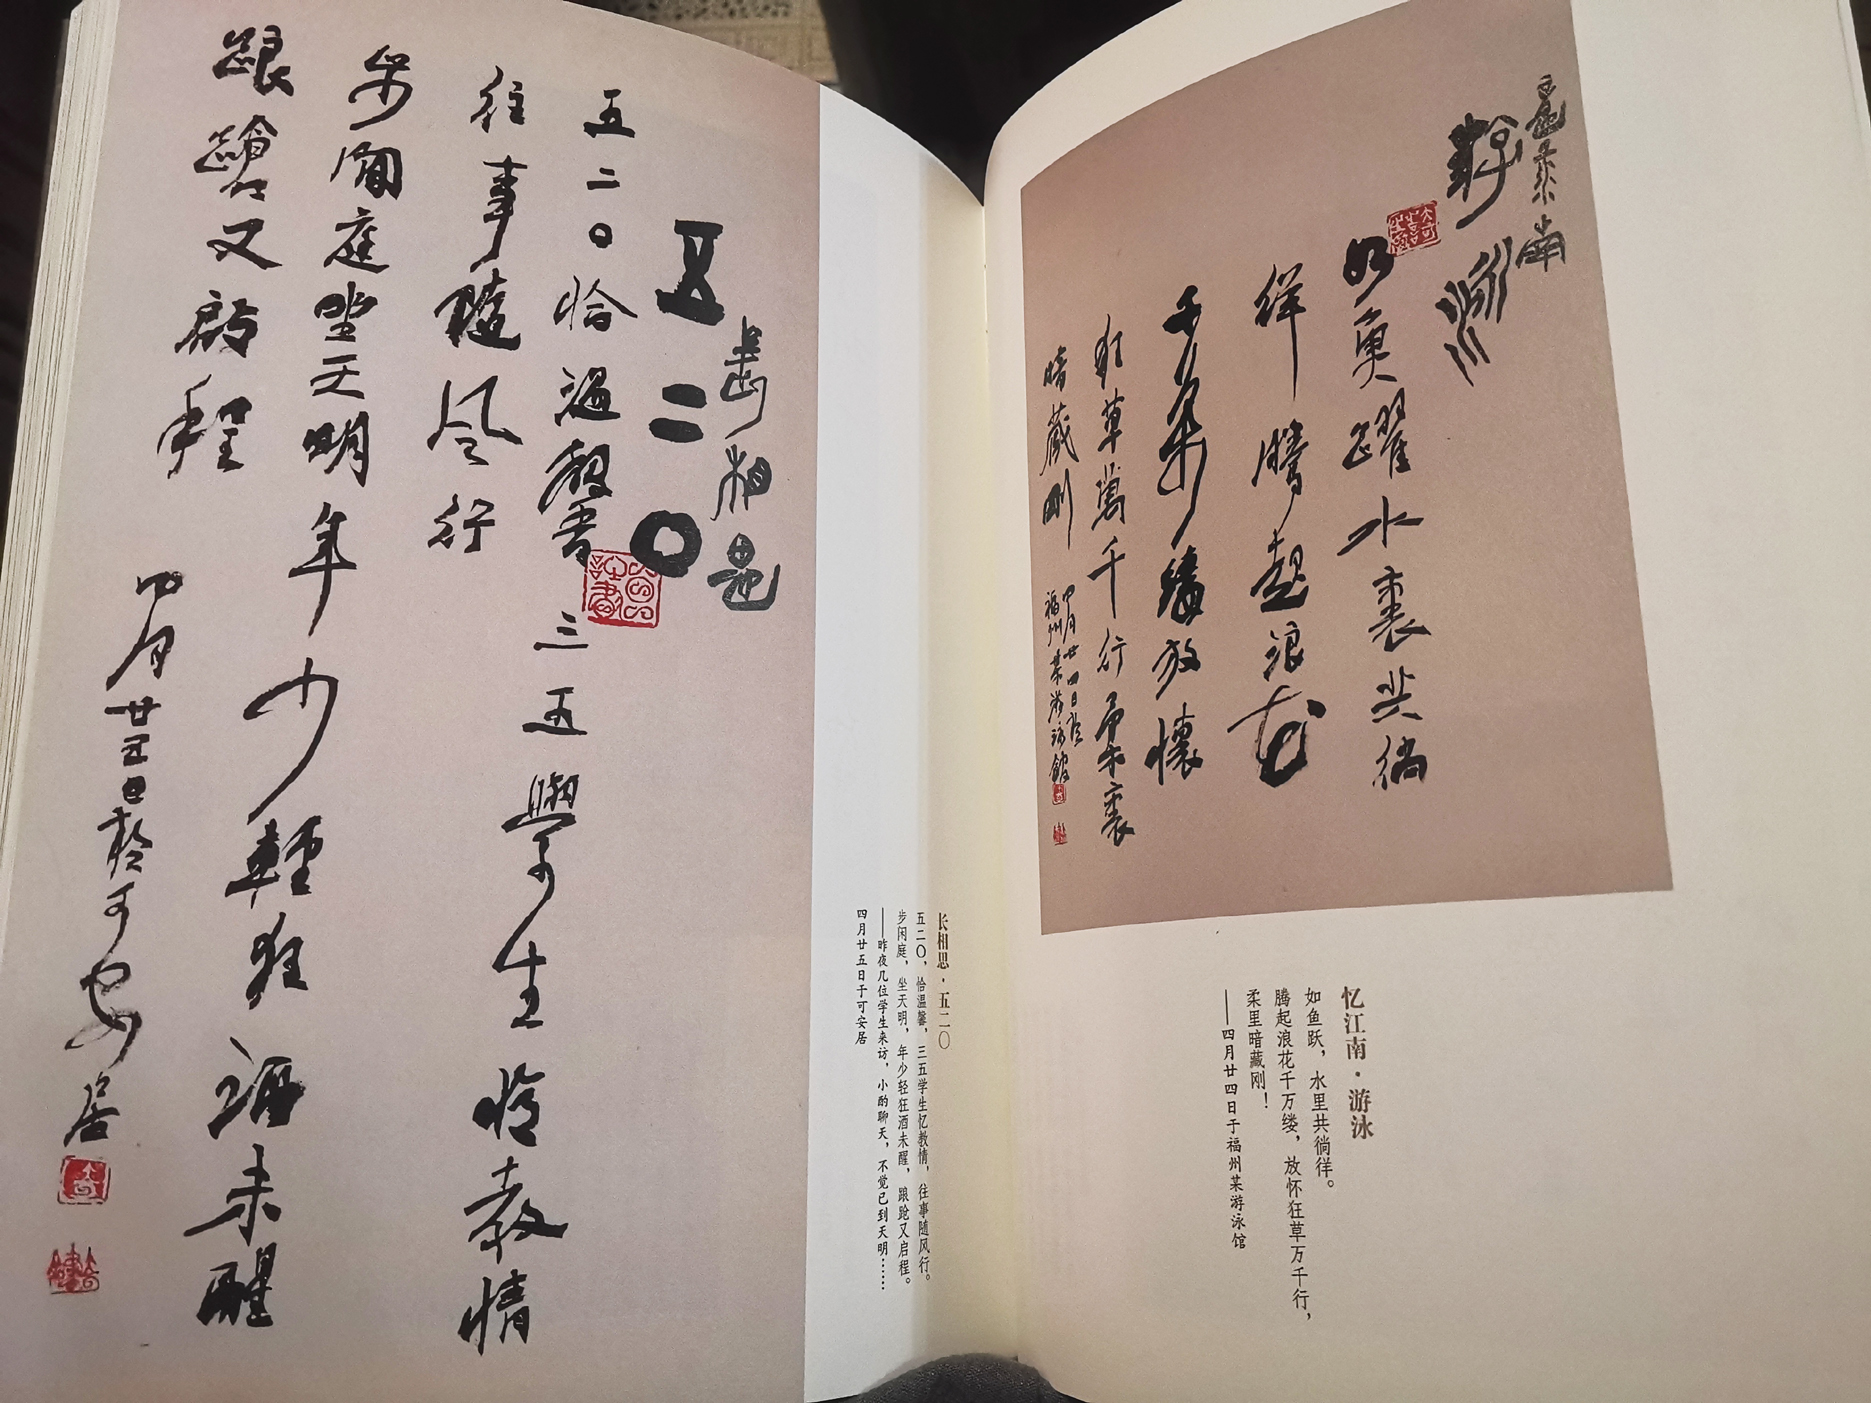 忆江南
游泳
如鱼跃水里共徜
徉腾起浪花
千万缕放怀
狂草万千行柔里
暗藏刚
四月廿四日于
福州某游泳馆
忆江南·游泳
如鱼跃，水里共徜徉。
腾起浪花千万缕，放怀狂草万千行，
柔里暗藏刚！
——四月廿四日于福州某游泳馆
长相思
五二〇
五二〇恰温馨三五學生憶教情
往事隨風行
步閒庭坐天明年少輕狂酒未醒
踉蹌又啟程
四月廿五日於可安居
长相思·五二〇
五二〇，恰温馨，三五学生忆教情，往事随风行。
步闲庭，坐天明，年少轻狂酒未醒，踉跄又启程。
——昨夜几位学生来访，小酌聊天，不觉已到天明……
四月廿五日于可安居